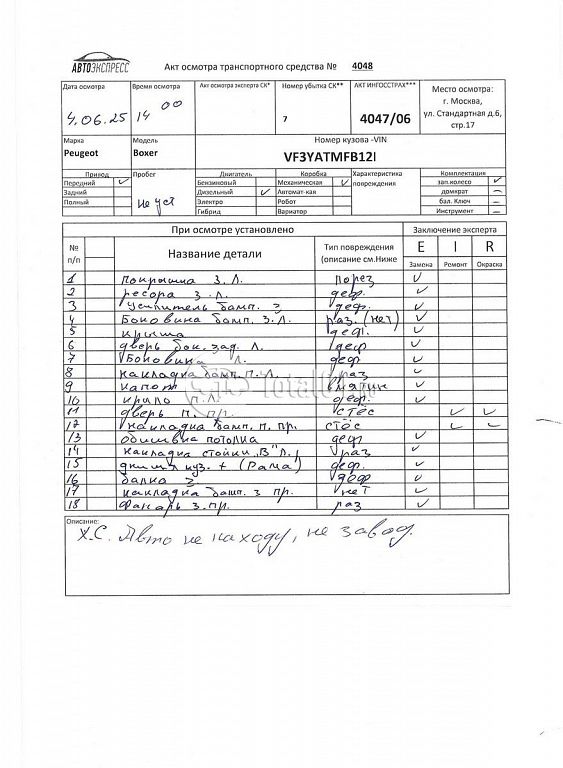 АВТОЭКСПРЕСС
Акт осмотра транспортного средства № 4048
Дата осмотра Время осмотра Акт осмотра эксперта СК* Номер убытка СК** АКТ ИНГОССТРАХ*** Место осмотра:
4.06.25 14 00 7 4047/06 г. Москва, ул. Стандартная д.6, стр.17
Марка Модель Номер кузова -VIN
Peugeot Boxer VF3YATMFB12I
Привод Пробег Двигатель Коробка Характеристика повреждения Комплектация
Передний ✓ Бензиновый Механическая ✓ зап.колесо ✓
Задний не уст Дизельный ✓ Автомат-кая домкрат –
Полный Электро Робот бал. Ключ –
Гибрид Вариатор Инструмент –
При осмотре установлено Заключение эксперта
№ п/п Название детали Тип повреждения (описание см.Ниже E I R
Замена Ремонт Окраска
1 покрышка З.Л. порез ✓
2 ресора З.Л. деф. ✓
3 усилитель бамп. З деф. ✓
4 Боковина бамп. З.Л. раз. (нет) ✓
5 крыша деф. ✓
6 дверь бок. зад. Л. деф ✓
7 Боковина Л. деф ✓
8 накладка бамп. П.Л. раз ✓
9 капот вмятин ✓
10 крыло П.Л. деф. ✓
11 дверь П. пр. стёс ✓ ✓
12 накладка бамп. П. пр. стёс ✓ ✓
13 обшивка потолка деф ✓
14 накладка стойки "В" Л. раз ✓
15 днища куз. + (Рама) деф. ✓
16 балка З деф ✓
17 накладка бамп. З пр. нет ✓
18 фанарь З.пр. раз ✓
Описание:
Х.С. Авто не на ходу, не завод.